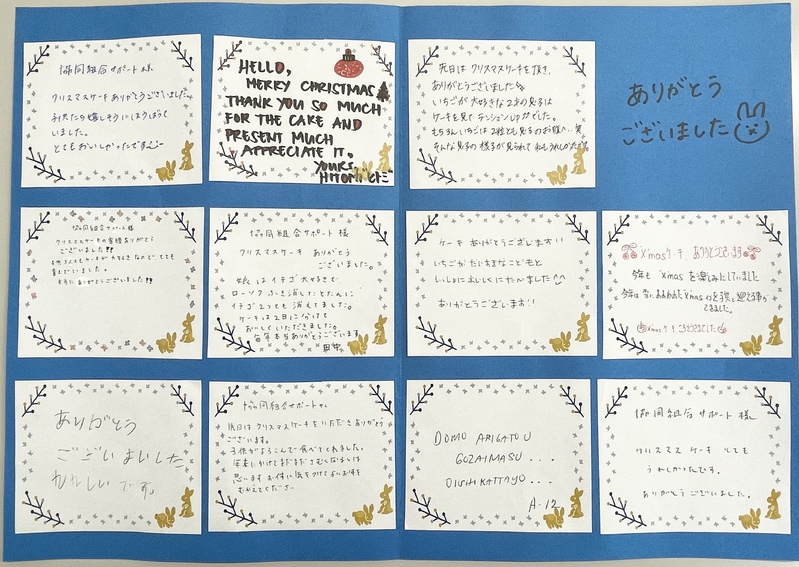 協同組合サポート様
クリスマスケーキありがとうございました。
子供たち嬉しそうにほうばって
いました。
とてもおいしかったです
HELLO,
MERRY CHRISTMAS
THANK YOU SO MUCH
FOR THE CAKE AND
PRESENT MUCH
APPRECIATE IT.
YOURS,
HITOMI ヒトミ
先日は クリスマスケーキを頂き、
ありがとうございました
いちごが大好きな2才の息子は
ケーキを見てテンションUPがでした。
もちろんいちごは2粒とも息子のお腹へ…笑
そんな息子の様子が見られて私もうれしかったです
ありがとう
ございました
協同組合サポート様
クリスマスケーキの ありがとう
ございました!!
ケーキが大好きなので、とても
喜んでいました。
本当にありがとうございました!!
協同組合サポート様
クリスマスケーキ ありがとう
ございました。
娘はイチゴ大好きで
ローソクふき消したとたんに
イチゴ2つとも消えてました。
ケーキは2日に分けて
おいしくいただきました。
毎年本当ありがとうございます。
田中
ケーキ ありがとうございます!!
いちごがだいすきなこどもと
いっしょにおいしくいただきました^^
ありがとうございます!!
X'masケーキ ありがとうございます
今年も X'mas を楽しみにしていました
今年は 皆 X'mas を 迎える事が
できました。
X'masケーキ ごちそうさまでした
ありがとう
ございまいした
われしいです。
協同組合サポートさん
先日はクリスマスケーキをいただきありがとう
ございます。
子供がよろこんで食べてくれました。
年末にかけてまだまださむくなるとは
思いますがお体に気をつけてよいお年を
むかえてくださーい
DOMO ARIGATOU
GOZAIMASU ...
OISHIKATTAYO ...
A-12
協同組合サポート様
クリスマスケーキ とても
うれしかったです。
ありがとうございました。